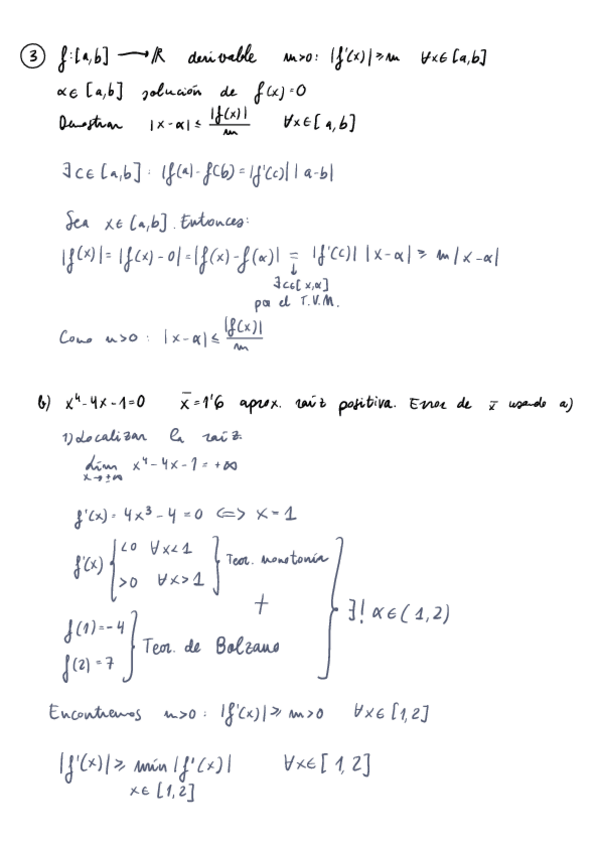 ③ f:[a,b] → ℝ derivable m>0: |f'(x)|≥m ∀x∈[a,b]
α∈[a,b] solución de f(x)=0
Demostrar |x-α| ≤ |f(x)|/m ∀x∈[a,b]
∃c∈[a,b]: |f(a)-f(b)=|f'(c)||a-b|
Sea x∈[a,b]. Entonces:
|f(x)|=|f(x)-0|=|f(x)-f(α)| = |f'(c)||x-α| ≥ m|x-α|
↓
∃c∈[x,α]
por el T.V.M.
Como m>0: |x-α| ≤ |f(x)|/m
b) x⁴-4x-1=0 x̄=1'6 aprox. raíz positiva. Error de x̄ usando a)
1) Localizar la raíz.
lim x→±∞ x⁴-4x-1=+∞
f'(x)=4x³-4=0 <=> x=1
f'(x) { <0 ∀x<1
>0 ∀x>1 } Teor. monotonía
+
f(1)=-4
f(2)=7 } Teor. de Bolzano
} ∃! α∈(1,2)
Encontremos m>0: |f'(x)|≥m>0 ∀x∈[1,2]
|f'(x)|≥ mín |f'(x)| ∀x∈[1,2]
x∈[1,2]